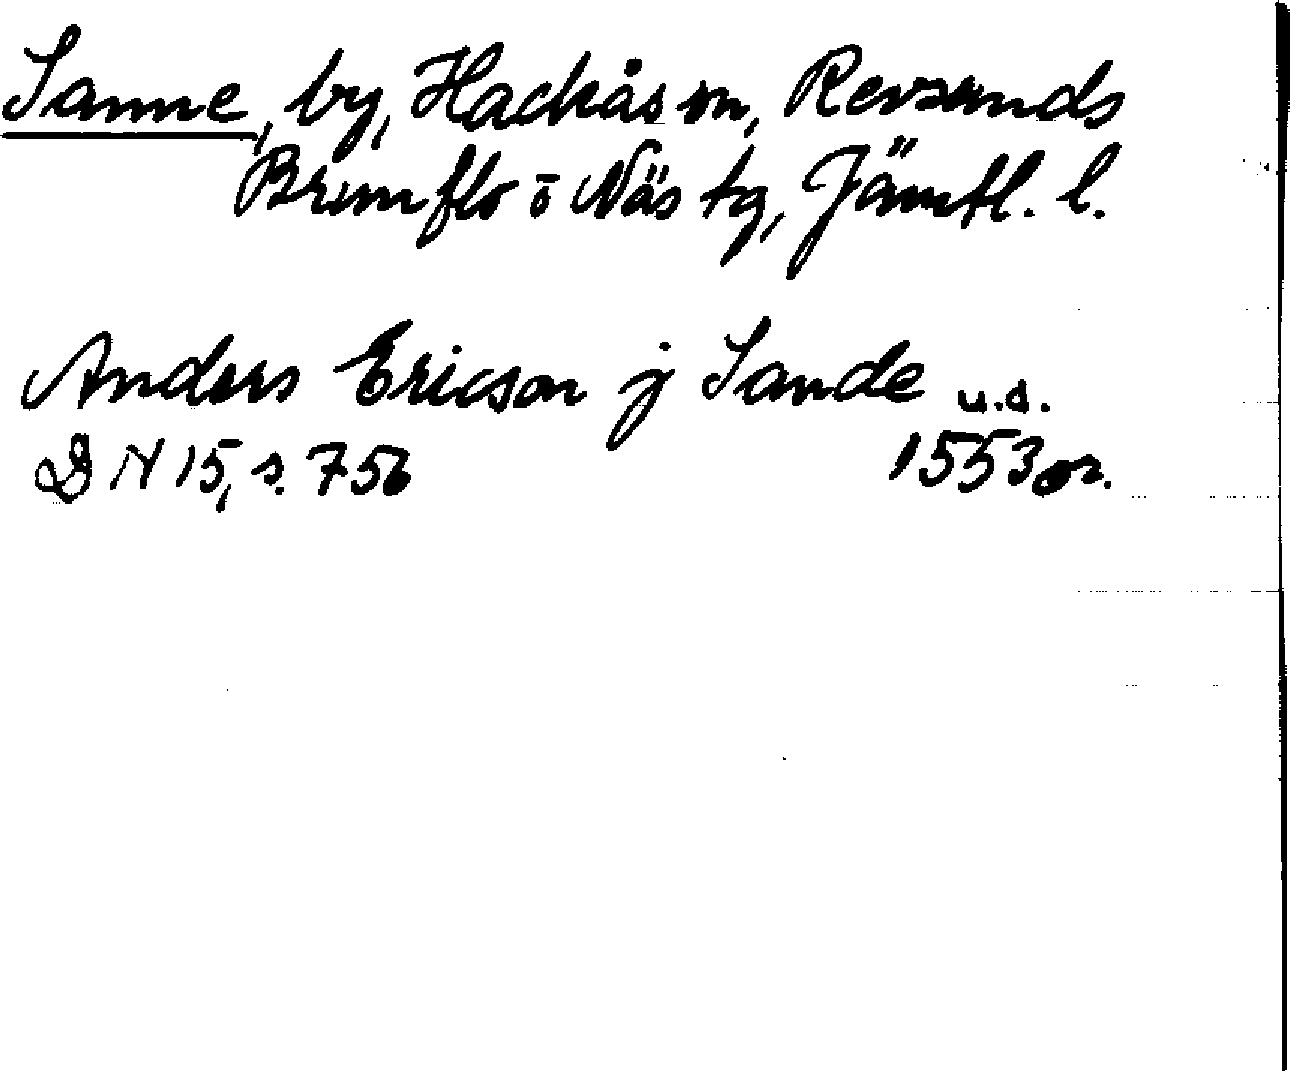 Sanne, by, Hackås sn, Revsunds
Brunflo o Näs tg, Jämtl. l.
Anders Ericson j Sande u.d.
DN 15, s. 756 1553 or.